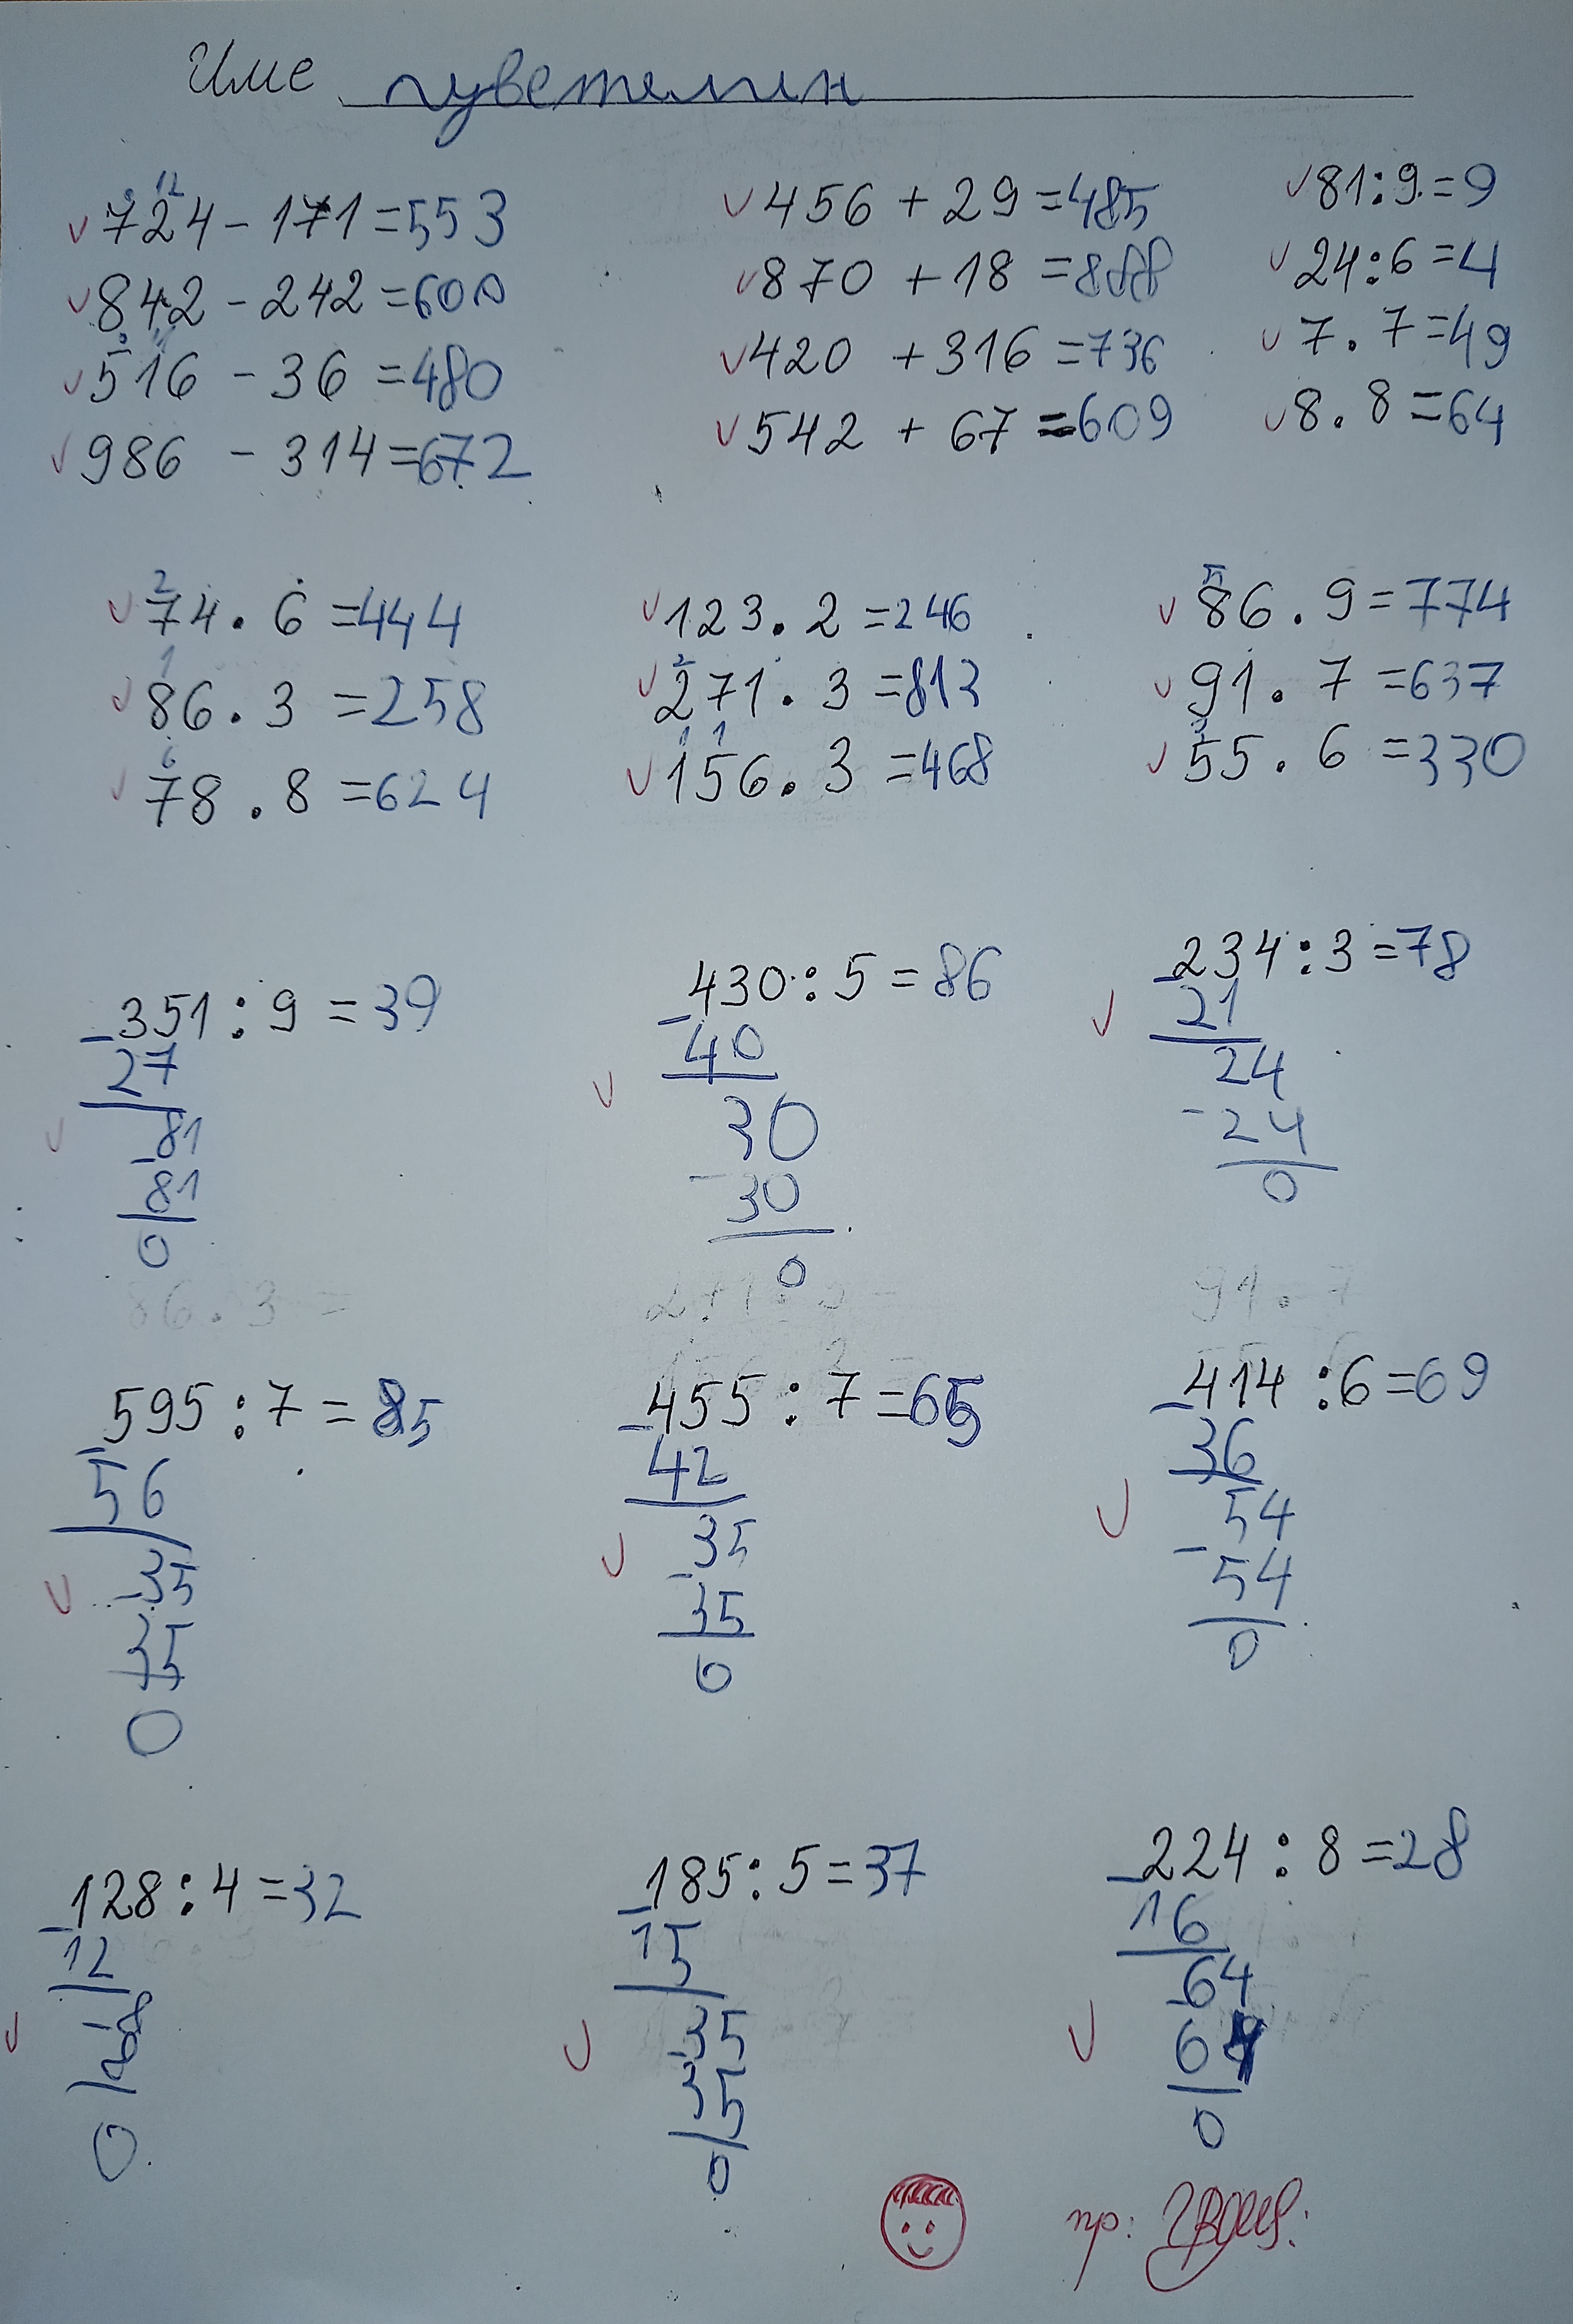 Име Цветелин
724 - 171 = 553
842 - 242 = 600
516 - 36 = 480
986 - 314 = 672
456 + 29 = 485
870 + 18 = 888
420 + 316 = 736
542 + 67 = 609
81 : 9 = 9
24 : 6 = 4
7 . 7 = 49
8 . 8 = 64
74 . 6 = 444
86 . 3 = 258
78 . 8 = 624
123 . 2 = 246
271 . 3 = 813
156 . 3 = 468
86 . 9 = 774
91 . 7 = 637
55 . 6 = 330
351 : 9 = 39
- 27
81
- 81
0
430 : 5 = 86
- 40
30
- 30
0
234 : 3 = 78
- 21
24
- 24
0
595 : 7 = 85
- 56
35
- 35
0
455 : 7 = 65
- 42
35
- 35
0
414 : 6 = 69
- 36
54
- 54
0
128 : 4 = 32
- 12
0
185 : 5 = 37
- 15
35
- 35
0
224 : 8 = 28
- 16
64
- 64
0
пр: